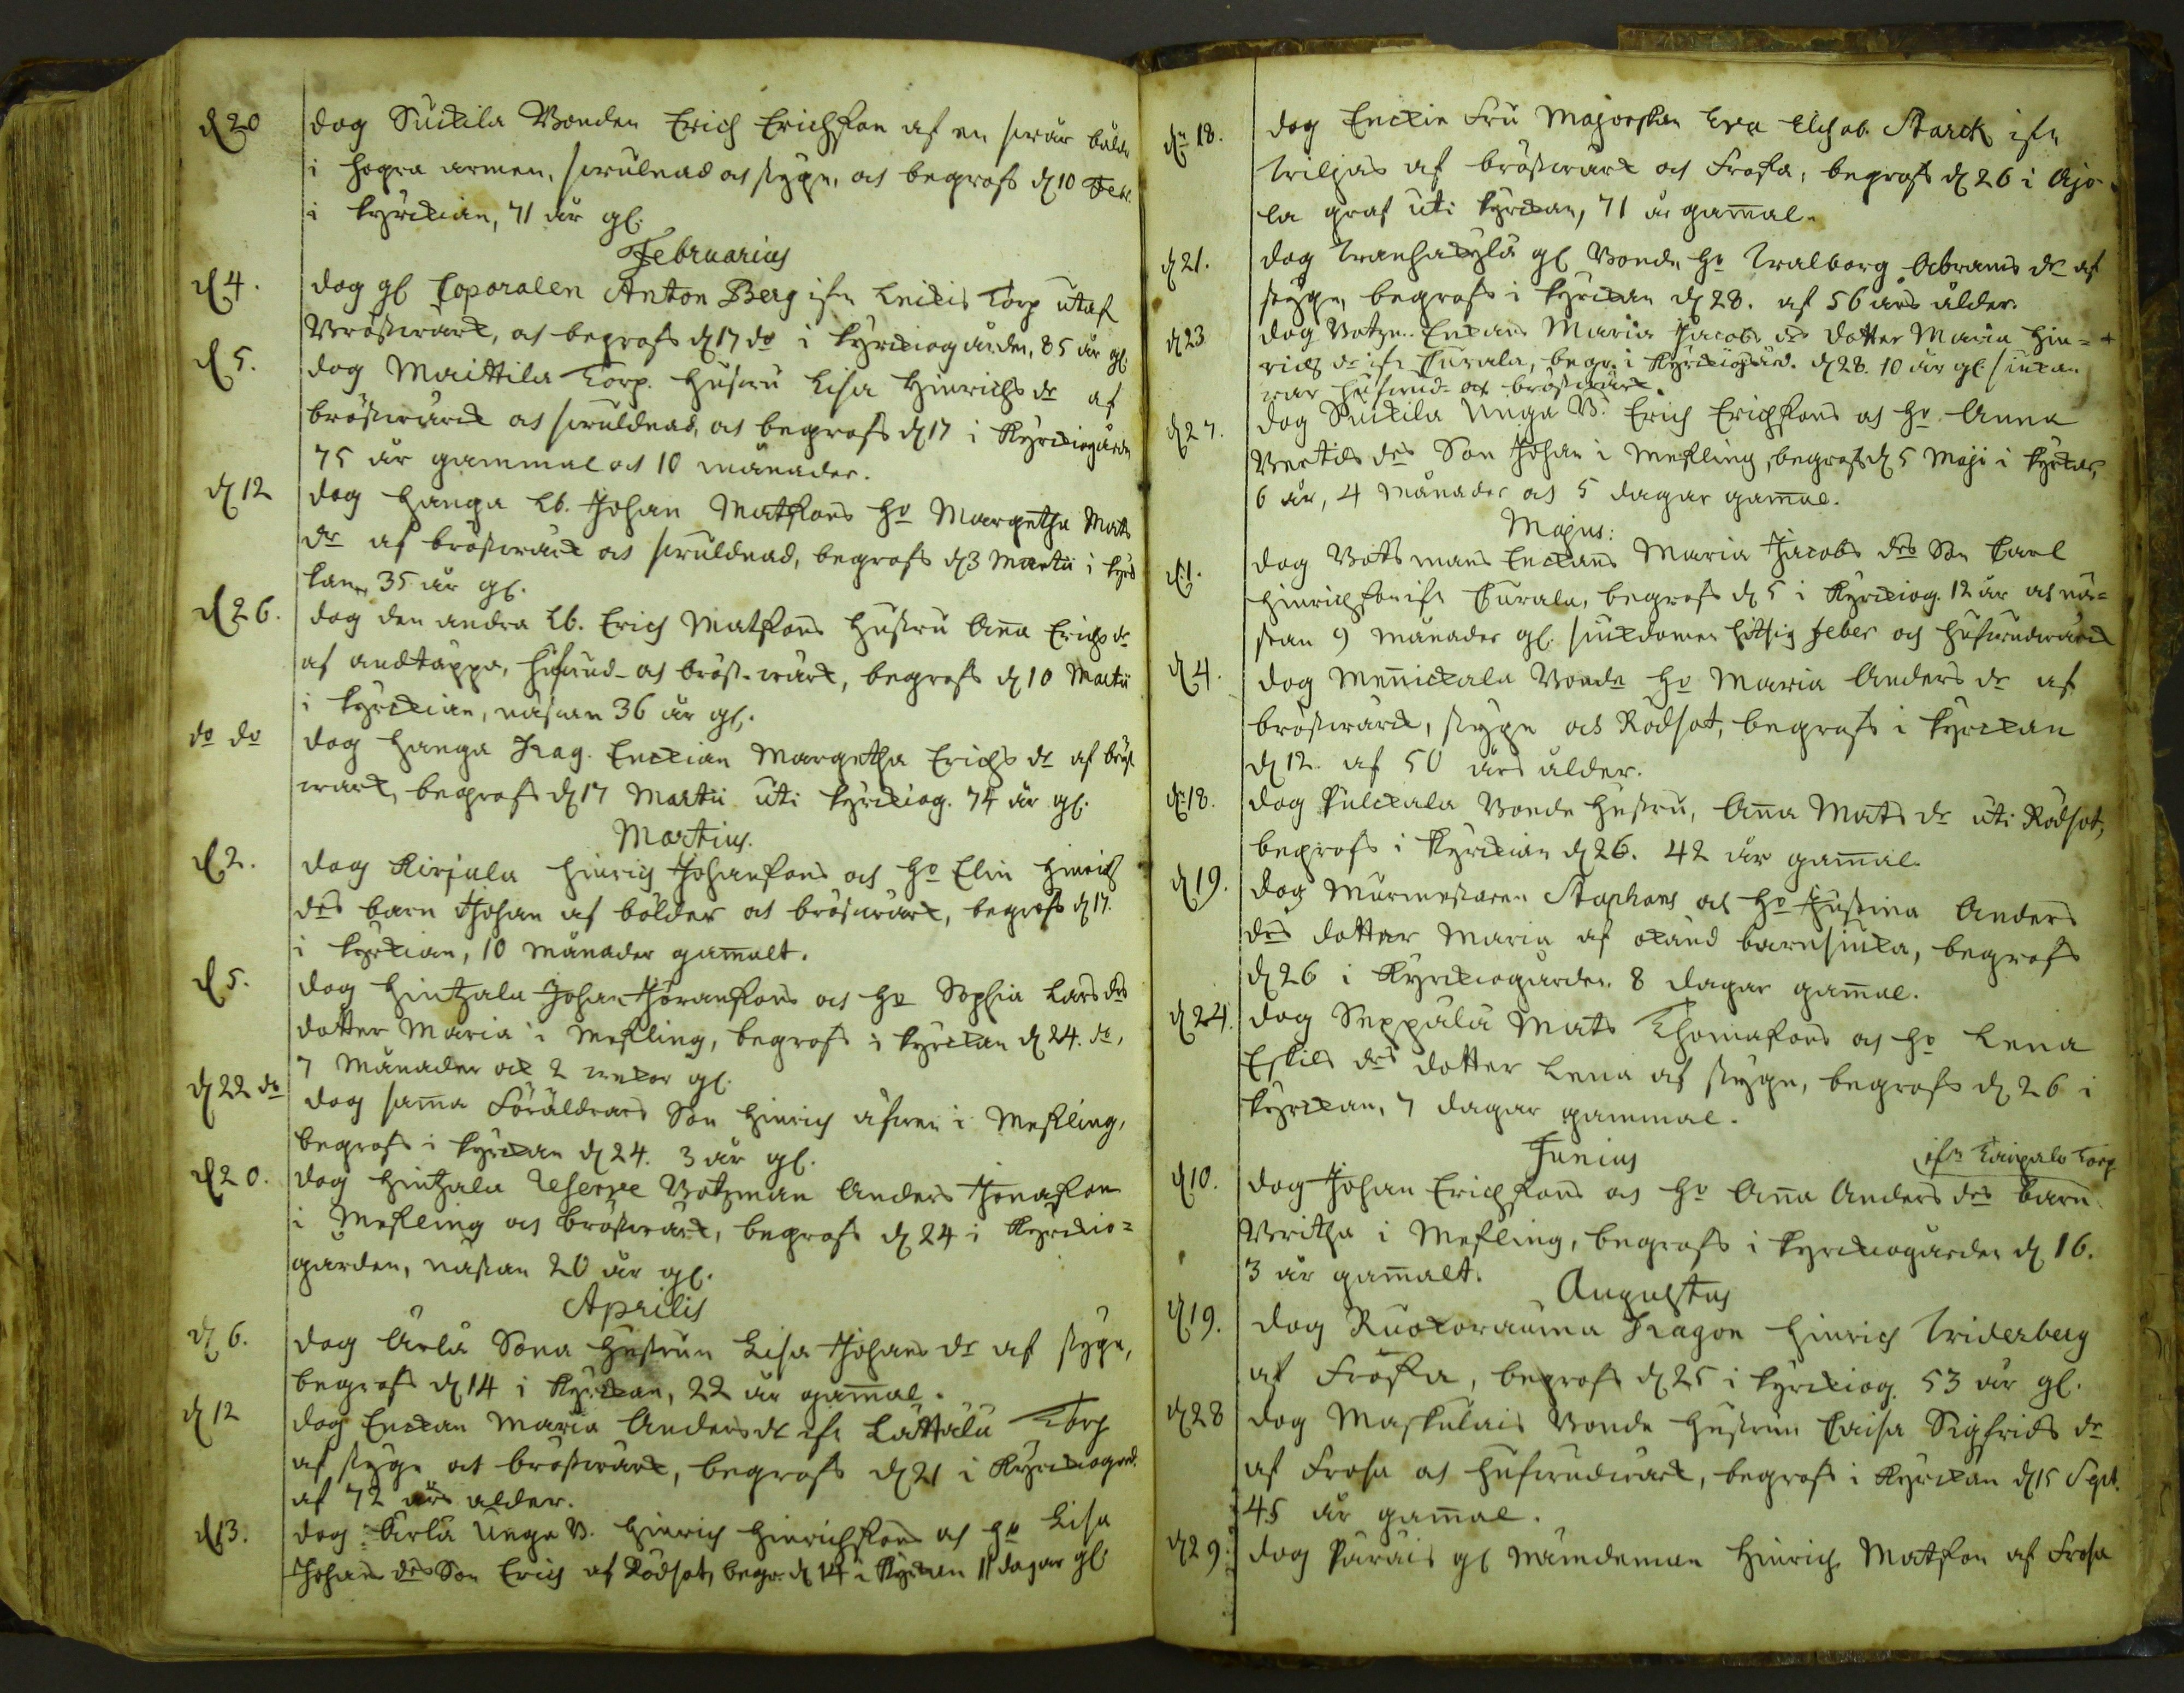 d 20 dog Suikila Bonden Erich Erichsson af en swår bålde
i högra armen, swulnad och styge, och begrofs d 10 Febr.
i kyrckian, 71 år gl.
Februarius
d 4. dog gl Coporalen Anton Berg ifr Torp utaf
Bröstwärck, och begrofs d 17 do i kyrckiogården, 85 år gl.
d 5. dog Maittila Torp. hustru Lisa Hinrichs dr af
bröstwärck och swuldnad, och begrofs d 17 i Kyrckiogården
75 år gammal och 10 månader.
d 12 dog Hanga Lb. Johan Matssons ho Margetha Mats
dr af bröstwärck och swuldnad, begrofs d 3 Martii i kyrc
kan, 35 år gl.
d 26. dog den andra Lb. Erich Matssons hustru Ana Erichs dr
af andtäppa, hufwud- och bröst-wärck, begrofs d 10 Martii
i kyrckian, nästan 36 år gl.
do do dog Hanga Enckian Margetha Erichs dr af bröst
warck, begrofs d 17 Martii uti kyrckiog. 74 år gl.
Martius.
d 2. dog Kirjala Hinrich Johanssons och ho Elin Hinrichs
drs barn Johan af bölder och bröstwärck, begrofs d 17.
i kyrckian, 10 månader gamalt.
d 5. dog Hintzala Johan Jöranssons och ho Sophia Lars drs
dotter Maria i Messling, begrofs i kyrckan d 24. do,
7 månader och 2 wekor gl.
d 22 do dog sama Föräldrars Son Hinrich äfwen i Messling,
begrofs i kyrckan d 24. 3 år gl.
d 20. dog Hintzala Reserve Botzman Anders Jonasson
i Messling och bröstwärck, begrofs d 24 i Kyrckio=
gården, nästan 20 år gl.
Aprilis
d 6. dog Ärlä Sona hustrun Lisa Johans dr af styge,
begrofs d 14 i Kyrckan, 22 år gamal.
d 12 dog Enckan Maria Anders dr ifr Lättälä Torp
af styge och bröstwärck, begrofs d 21 i Kyrckiogård.
af 72 års ålder.
d 13. dog Ärlä Unga B. Hinrich Hinrichssons och ho Lisa
Johans drs Son Erich af Rödsot, begr. d 14 i Kyrckan 11 dagar gl.
dn 18. dog Enckie Fru Majorskan Eva Elisab. Starck ifr
Wiljas af bröstwärck och Frossa, begrofs d 26 i
la graf uti kyrckan, 71 år gamal.
d 21. dog gl Bonde ho Walborg Abrams dr af
styge, begrofs i kyrckan d 28. af 56 års ålder.
d 23 dog Botzm. Enckans Maria Jacobs drs dotter Maria Hin=
richs dr ifr Curala, begr. i Kyrckiogård. d 28. 10 år gl. siukan
war hufwud- och bröstwärck.
d 27. dog Suikila Unga B. Erich Erichssons och ho Anna
Bertils drs Son Johan i Messling, begrofs d 5 Maji i kyrckan,
6 år, 4 månader och 5 dagar gamal.
Majus:
d 1. dog Båtsmans Enckans Maria Jacobs drs Son Carl
Hinrichsson ifr Curala, begrofs d 5 i Kyrckiog. 12 år och nä=
stan 9 månader gl. siukdomen hitsig feber och hufwudwärck
d 4. dog Menickala Bonde ho Maria Anders dr af
bröstwärck, styge och Rödsot, begrofs i kyrckan
d 12. af 50 års ålder.
dn 18. dog Pulckala Bonde hustru, Ana Mats dr uti Rödsot,
begrofs i kyrckian d 26. 42 år gamal.
d 19. dog Murmestaren Staphans och ho Justina Anders
drs dotter Maria af okänd barnsiuka, begrofs
d 26 i Kyrckiogården 8 dagar gamal.
d 24. dog Seppälä Mats Thomassons och ho Lena
Eskils drs dotter Lena af styge, begrofs d 26 i
kyrckan, 7 dagar gammal.
Junius
ifrn Torp
d 10. dog Johan Erichssons och ho Ana Anders drs barn
Britha i Messling, begrofs i kyrckiogården d 16.
3 år gamalt.
Augustus
d 19. dog Ruokorauma Hinrich Widerberg
af Frossa, begrofs d 25 i kyrckiog. 53 år gl.
d 28 dog Maskulais Bonde hustrun Caisa Sigfrids dr
af Frosa och hufwudwärck, begrofs i Kyrckan d 15 Sept.
45 år gamal.
d 29. dog Päräis gl nämdeman Hinrich Matsson af Frosa